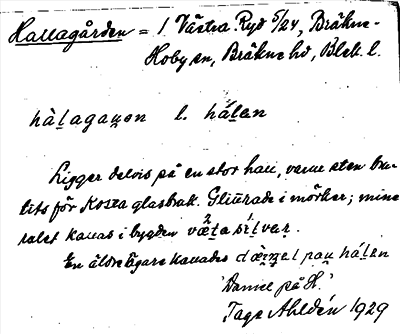 Hallagården = 1 Västra Ryd 5/24, Bräkne-
Hoby sn, Bräkne hd, Blek. l.
hàḷagaṇen l. háḷen
Ligger delvis på en stor hall, varur sten bru-
tits för Kosta glasbruk. Glimrade i mörker; mine-
ralet kallas i bygden
En äldre ägare kallades dæ̀ɱel pau háḷen
'Daniel på H.'
Tage Ahldén 1929